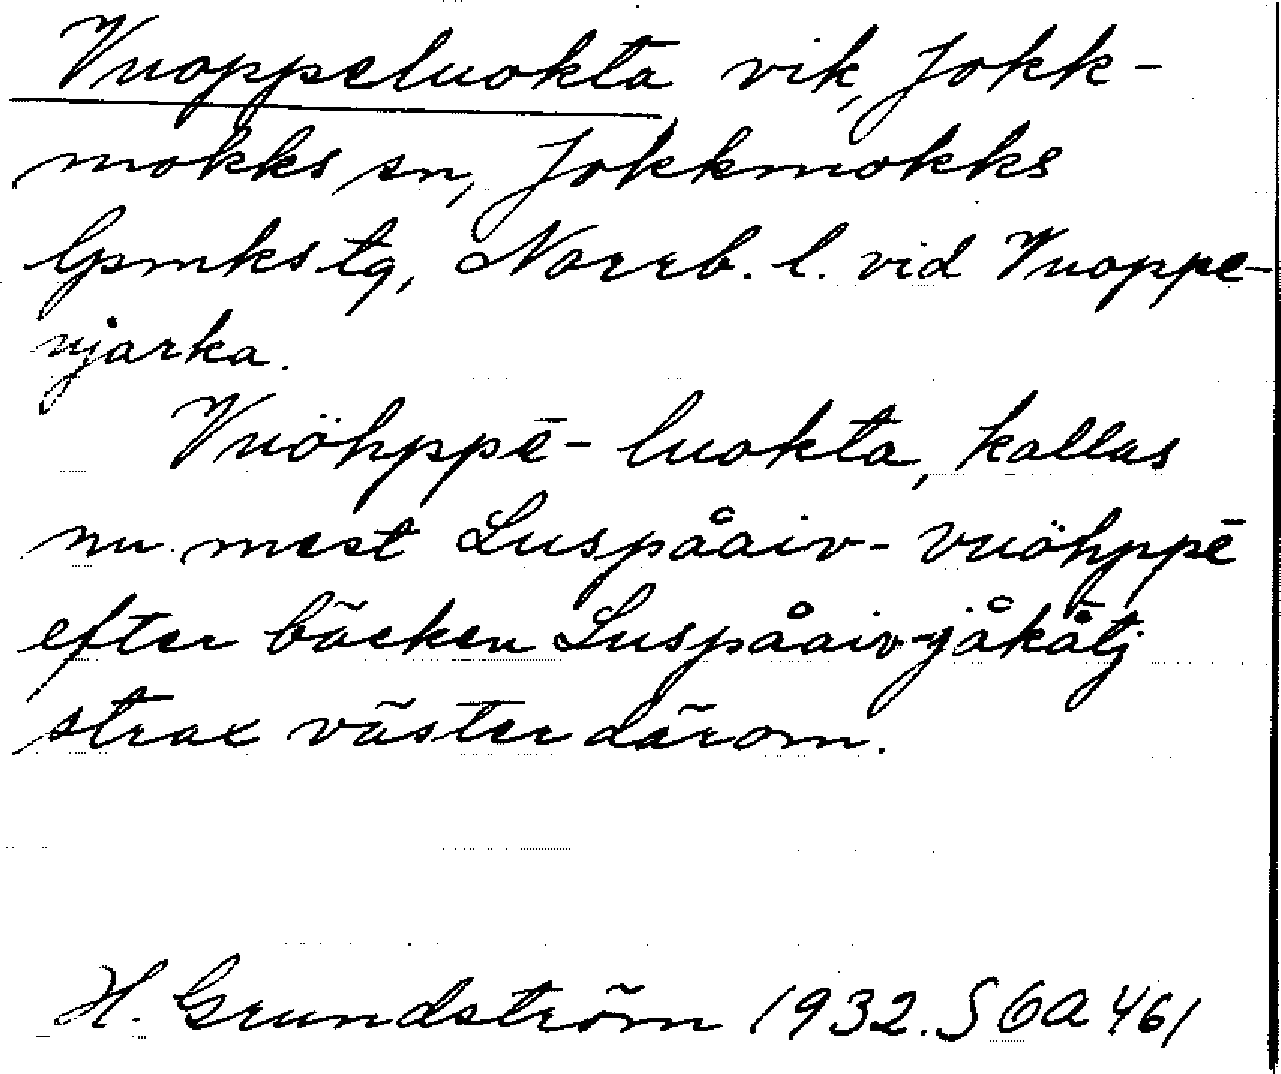 Vuoppeluokta vik, Jokk-
mokks sn, Jokkmokks
lpmks tg, Norrb. l. vid Vuoppe-
njarka.
Vuöhppē-luokta, kallas
nu mest Luspåaiv-vuöhppē
efter bäcken Luspåaiv-jåkåtj
strax väster därom.
H. Grundström 1932. S 6a 461